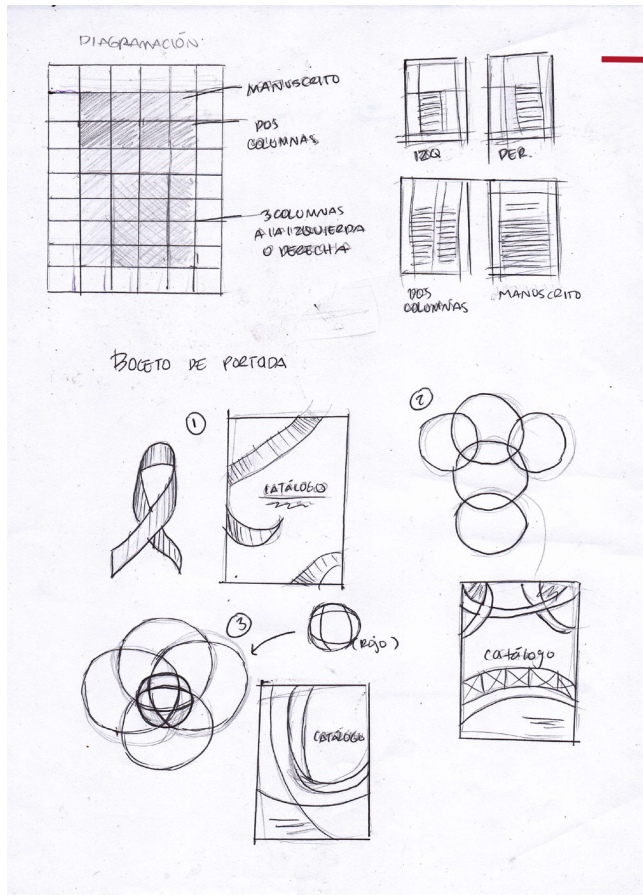 DIAGRAMACIÓN
MANUSCRITO
DOS
COLUMNAS
3 COLUMNAS
A LA IZQUIERDA
O DERECHA
IZQ
DER.
DOS
COLUMNAS
MANUSCRITO
BOCETO DE PORTADA
1
CATÁLOGO
2
catálogo
3
(ROJO)
CATÁLOGO